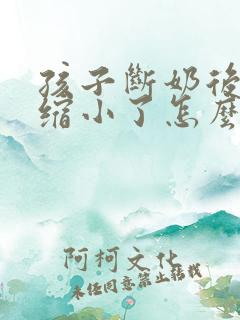 孩子斷奶後
缩小了怎麼
阿柯文化
未经同意禁止转载